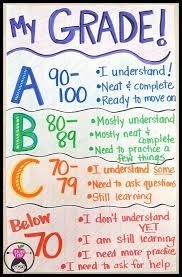 My GRADE!
A 90-100
• I understand!
• Neat & complete
• Ready to move on
B 80-89
• Mostly understand
• Mostly neat & complete
• Need to practice a few things
C 70-79
• I understand some
• Need to ask questions
• Still learning
Below 70
• I don't understand YET
• I am still learning
• I need more practice
• I need to ask for help